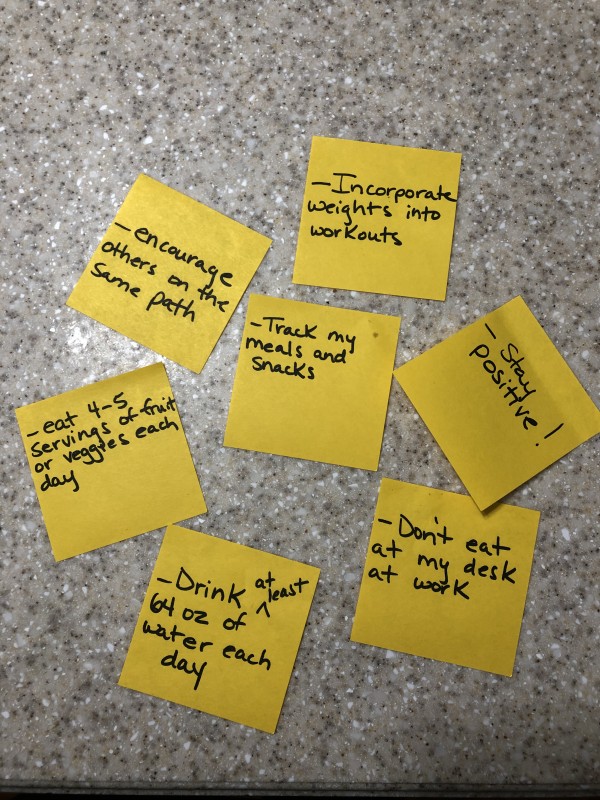 -Incorporate
weights into
workouts
-encourage
others on the
same path
-Track my
meals and
snacks
-Stay
positive!
-eat 4-5
servings of fruit
or veggies each
day
-Don't eat
at my desk
at work
-Drink at least
64 oz of
water each
day